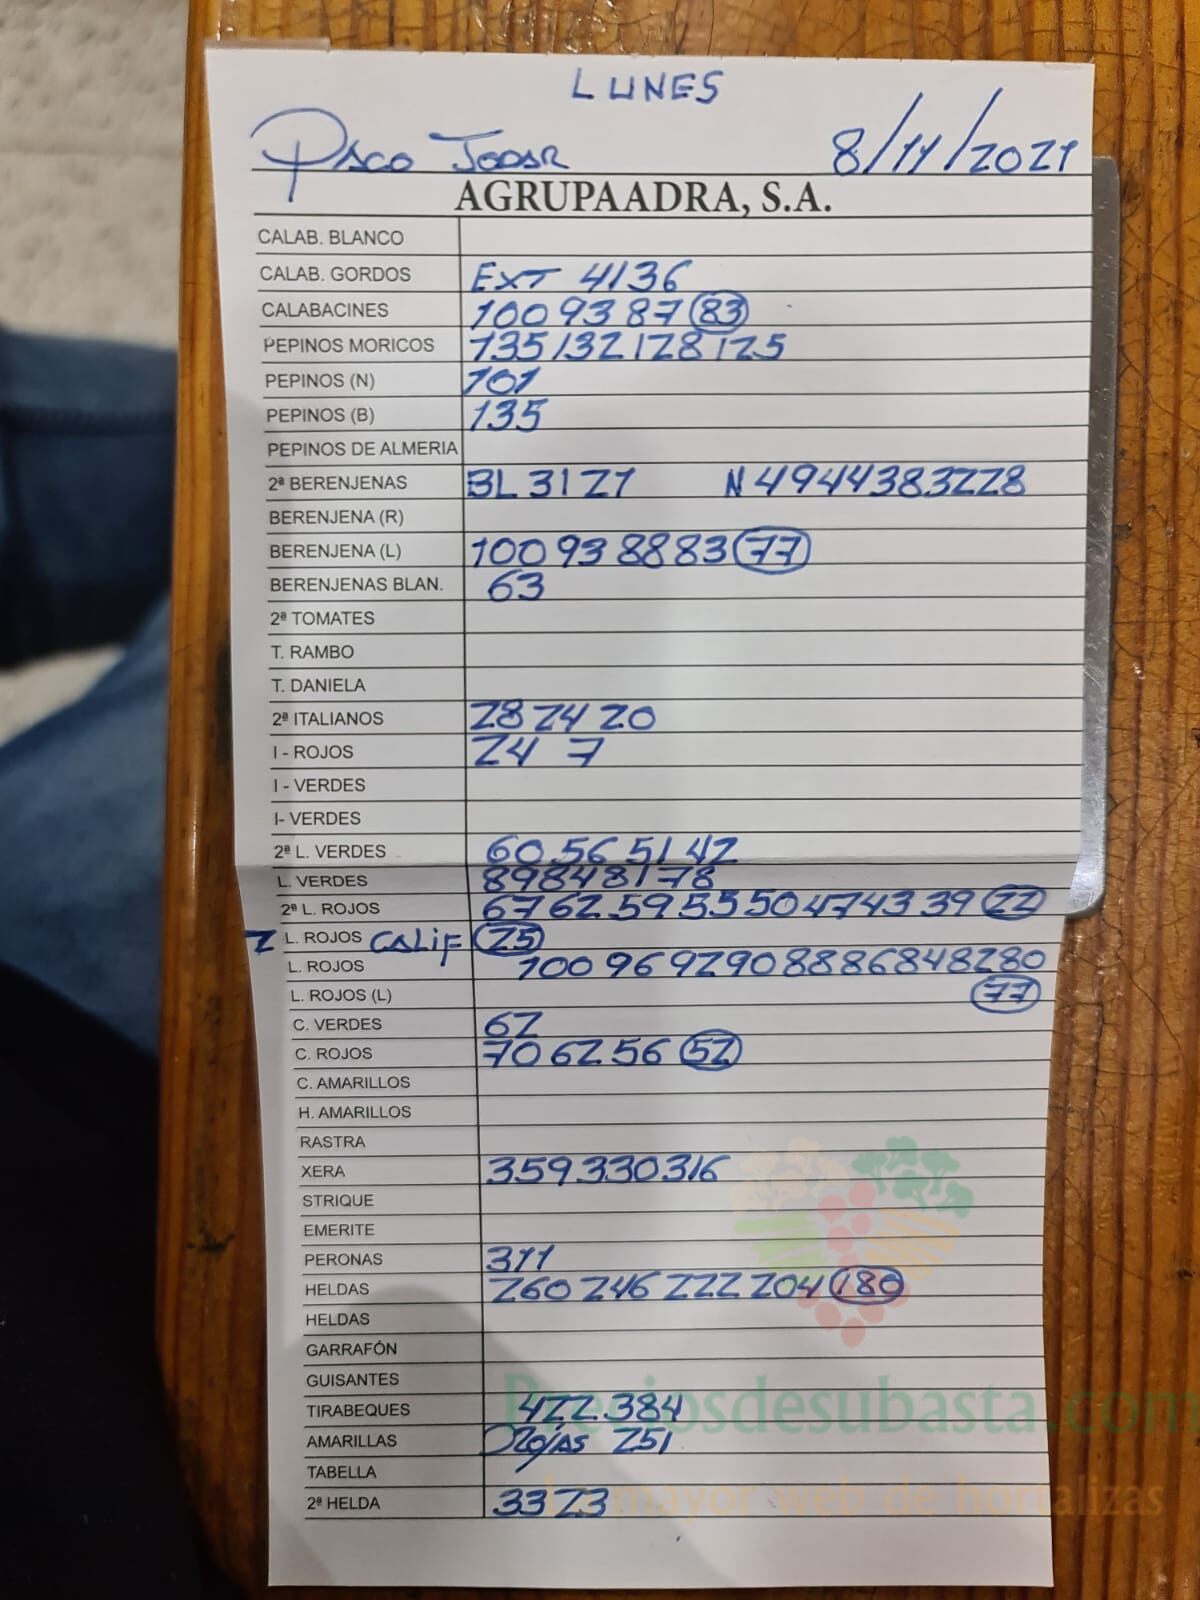 LUNES
Paco Jodar 8/11/2021
AGRUPAADRA, S.A.
CALAB. BLANCO
CALAB. GORDOS EXT 41 36
CALABACINES 100 93 87 83
PEPINOS MORICOS 135 132 128 125
PEPINOS (N) 101
PEPINOS (B) 135
PEPINOS DE ALMERIA
2ª BERENJENAS BL 31 21 N 49 44 38 32 28
BERENJENA (R)
BERENJENA (L) 100 93 88 83 77
BERENJENAS BLAN. 63
2ª TOMATES
T. RAMBO
T. DANIELA
2ª ITALIANOS 28 24 20
I - ROJOS 24 7
I - VERDES
I- VERDES
2ª L. VERDES 60 56 51 42
L. VERDES 89 84 81 78
2ª L. ROJOS 67 62 59 55 50 47 43 39 22
2 L. ROJOS CALIF 25
L. ROJOS 100 96 92 90 88 86 84 82 80
L. ROJOS (L) 77
C. VERDES 62
C. ROJOS 70 62 56 52
C. AMARILLOS
H. AMARILLOS
RASTRA
XERA 359 330 316
STRIQUE
EMERITE
PERONAS 311
HELDAS 260 246 222 204 180
HELDAS
GARRAFÓN
GUISANTES
TIRABEQUES 422 384
Preciosdesubasta.com
AMARILLAS Rojas 251
TABELLA
2ª HELDA 33 23
La mayor web de hortalizas